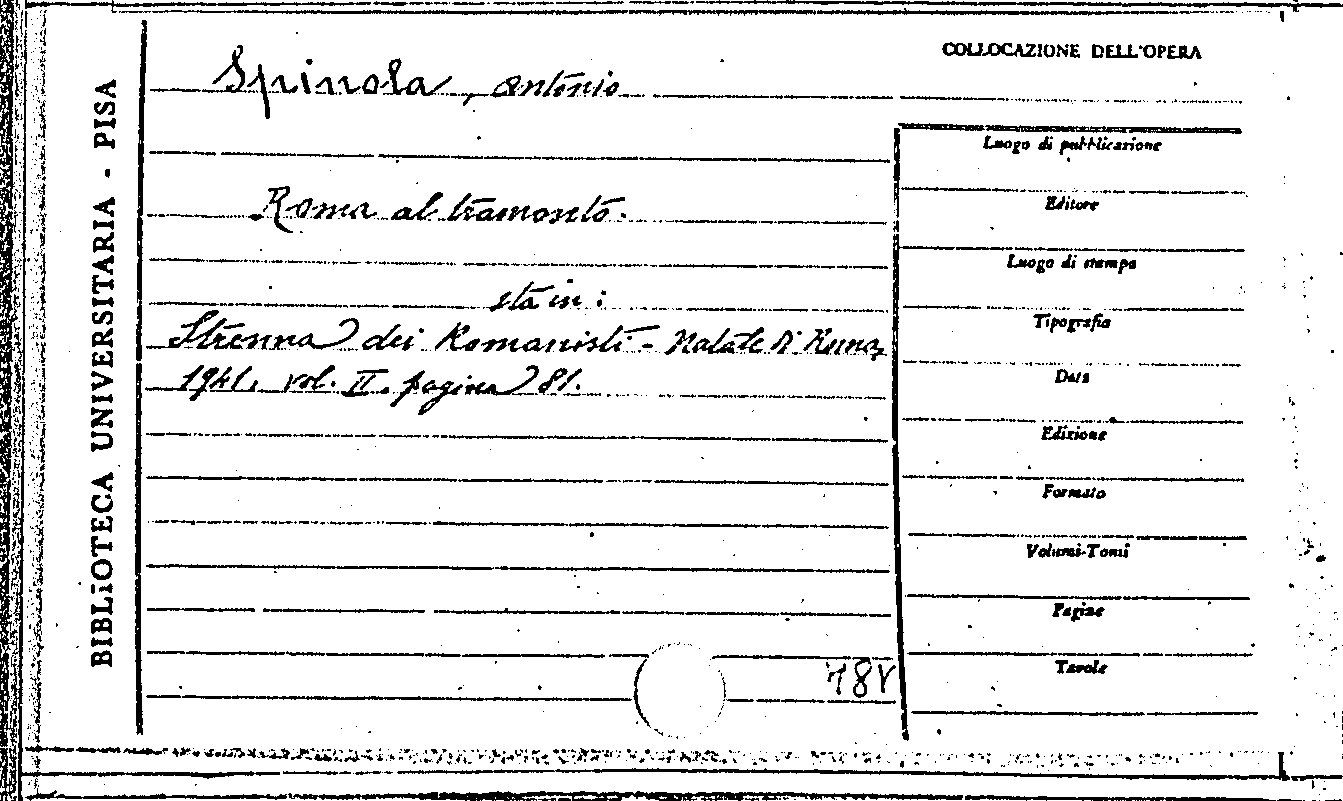 BIBLIOTECA UNIVERSITARIA - PISA
COLLOCAZIONE DELL'OPERA
Spinola, Antonio
Roma al tramonto.
sta in:
Strenna dei Romanisti - Natale di Roma,
1941. vol. II. pagina 81.
Luogo di pubblicazione
Editore
Luogo di stampa
Tipografia
Data
Edizione
Formato
Volumi-Tomi
Pagine
Tavole